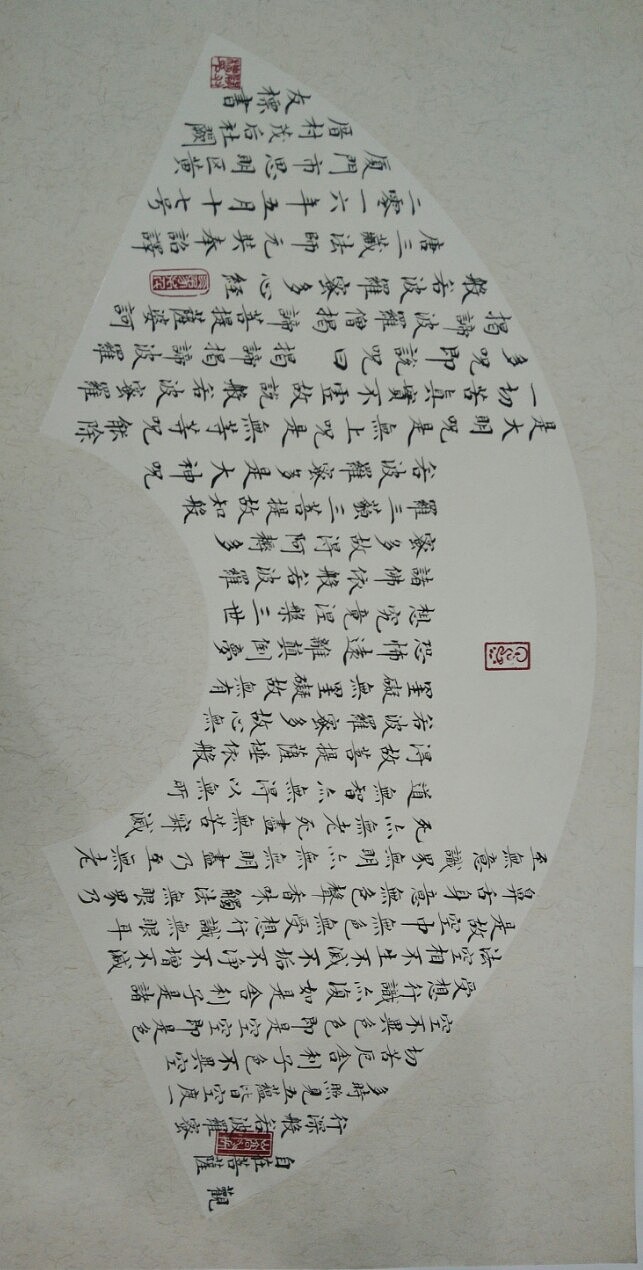 觀
自在菩薩
行深般若波羅蜜
多時照見五蘊皆空度一
切苦厄舍利子色不異空
空不異色色即是空空即是色
受想行識亦復如是舍利子是諸
法空相不生不滅不垢不淨不增不減
是故空中無色無受想行識無眼耳
鼻舌身意無色聲香味觸法無眼界乃
至無意識界無明亦無無明盡乃至無老
死亦無老死盡無苦寐滅
道無智亦無得以無所
得故菩提薩埵依般
若波羅蜜多故心無
罣礙無罣礙故無有
恐怖遠離顛倒夢
想究竟涅槃三世
諸佛依般若波羅
蜜多故得阿耨多
羅三藐三菩提故知般
若波羅蜜多是大神呪
是大明呪是無上呪是無等等呪能除
一切苦真實不虛故說般若波羅蜜
多呪即說呪曰揭諦揭諦波羅
揭諦波羅僧揭諦菩提薩婆訶
般若波羅蜜多心經
唐三藏法師元奘奉詔譯
二零一六年五月十七号
厦門市思明区黄
厝村茂后社闕
友標書